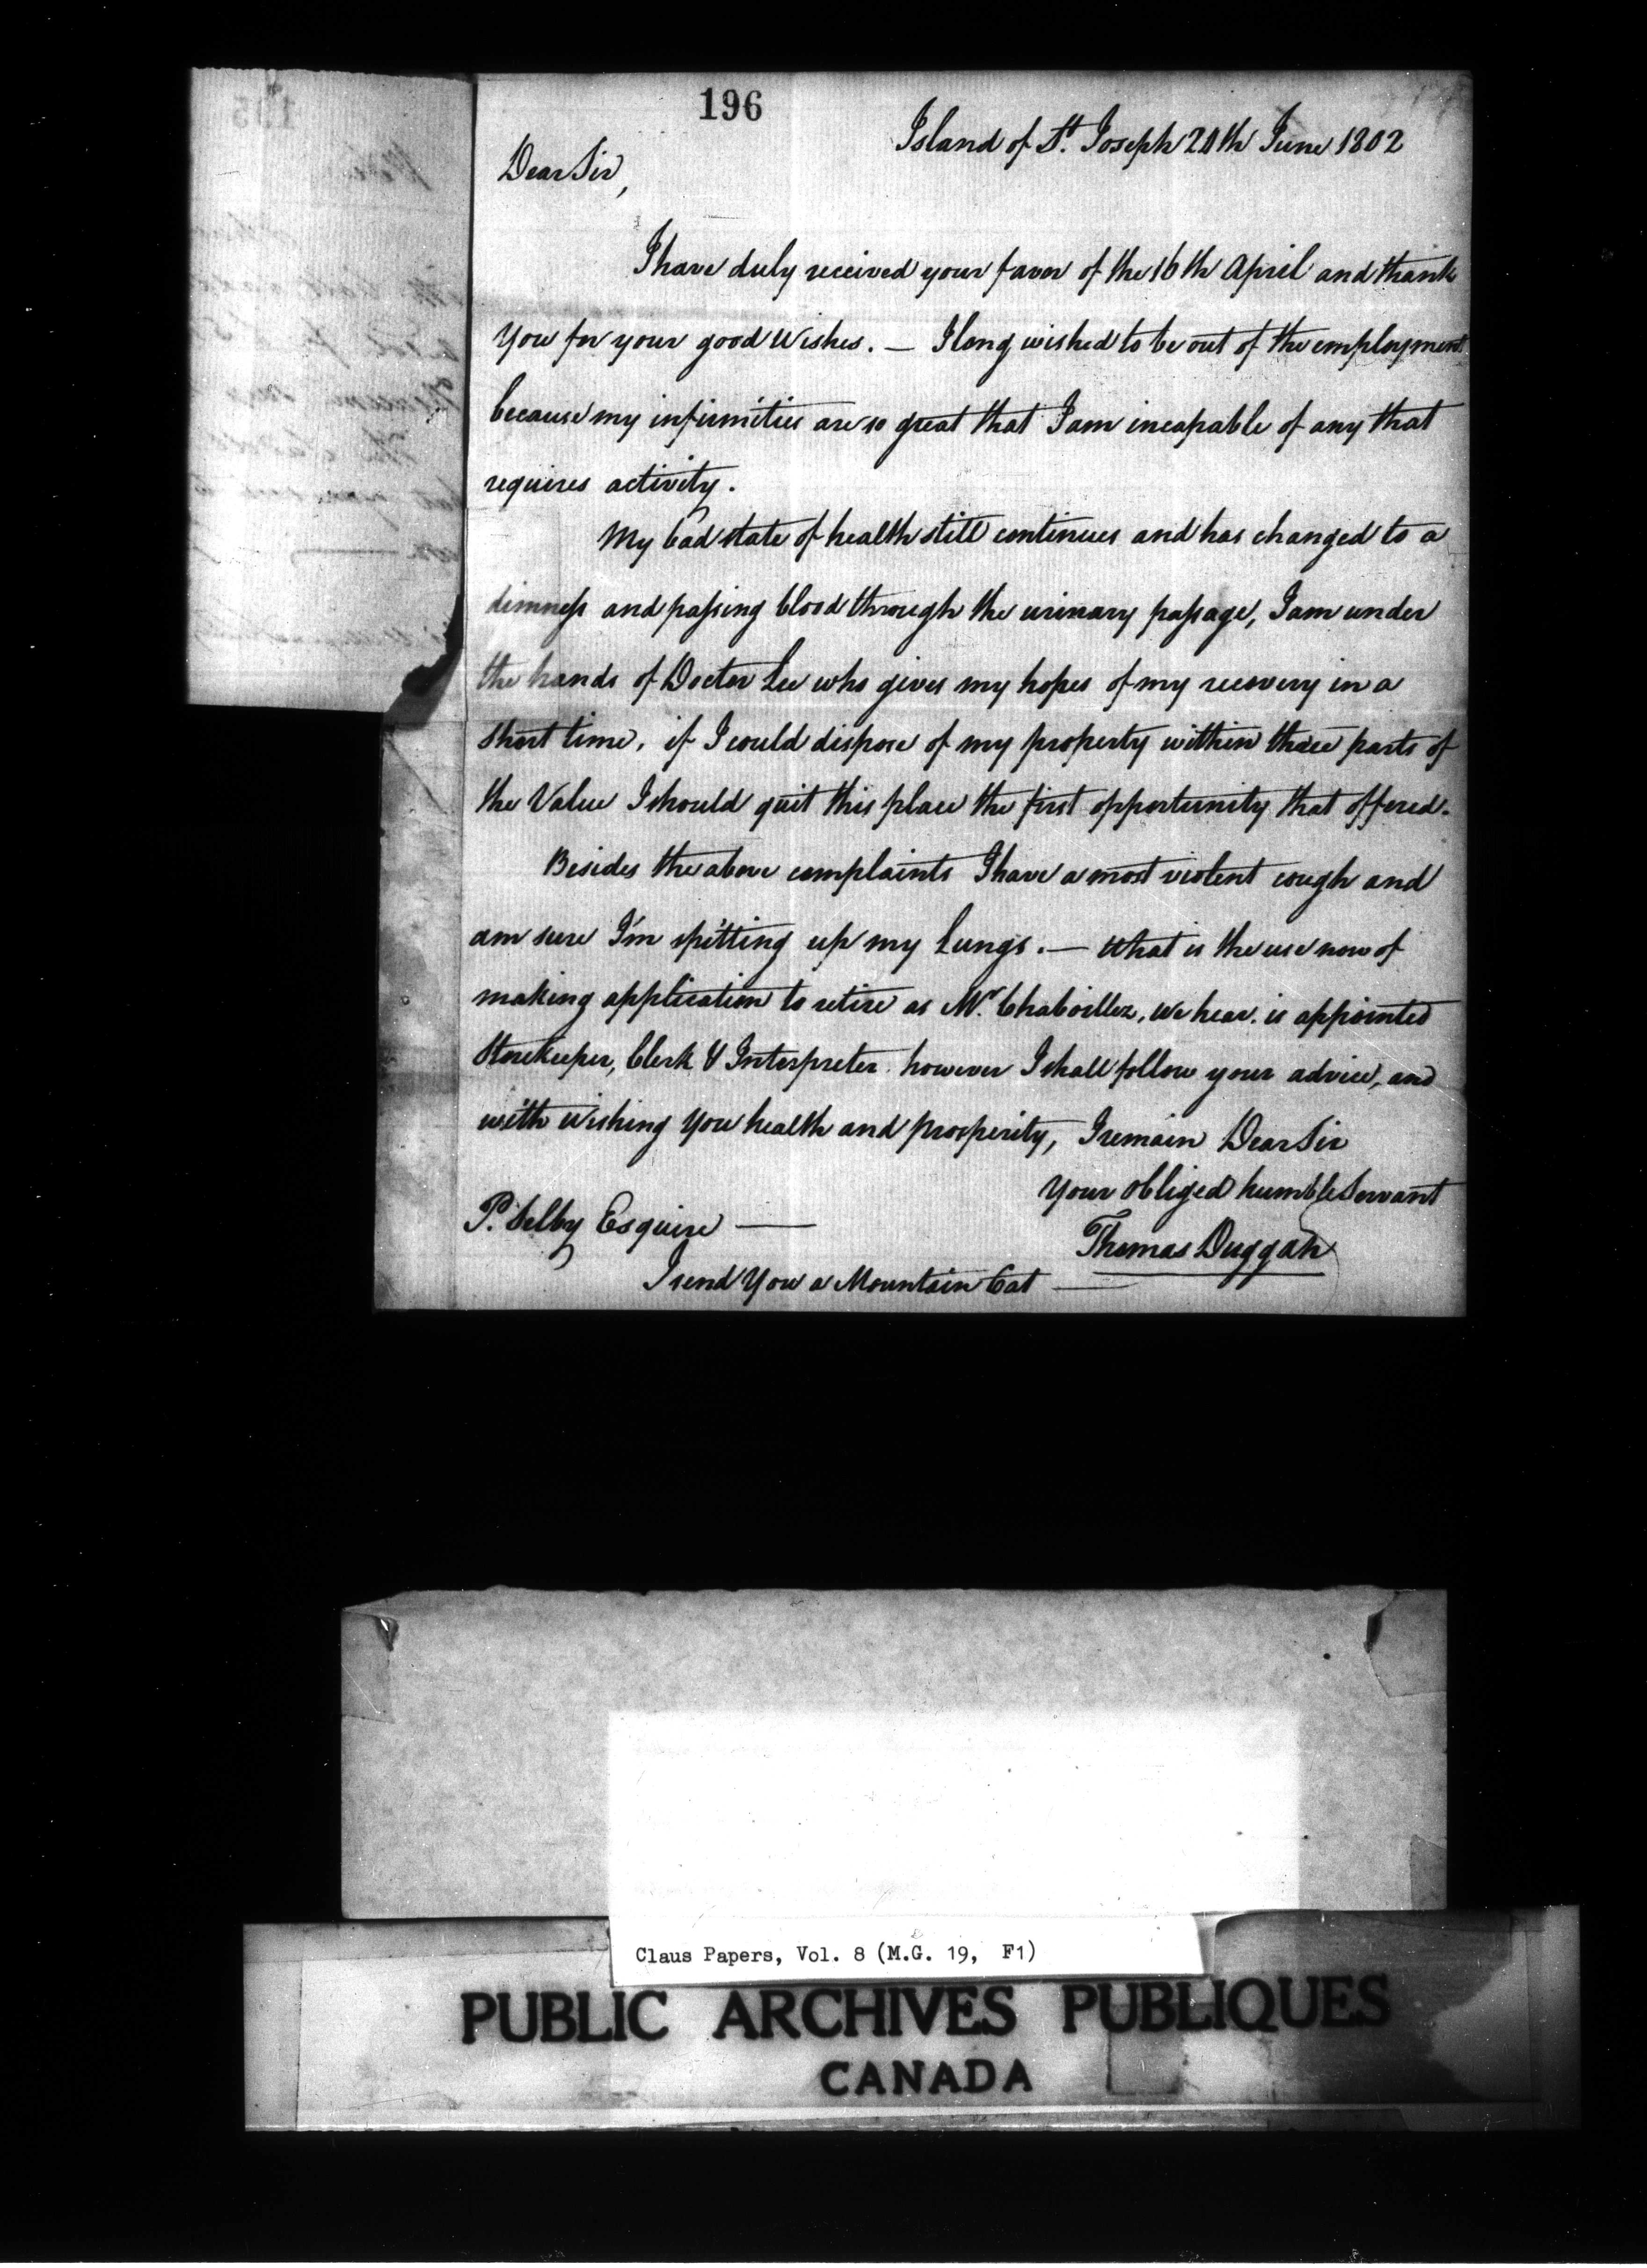 196
Island of St. Joseph 20th June 1802
Dear Sir,
I have duly received your favor of the 16th April and thank
You for your good Wishes. — I long wished to be out of the employment
because my infirmities are so great that I am incapable of any that
requires activity.
My bad state of health still continues and has changed to a
dimness and passing blood through the urinary passage, I am under
the hands of Doctor Lee who gives my hopes of my recovery in a
short time, if I could dispose of my property within three parts of
the Value I should quit this place the first opportunity that offered.
Besides the above complaints I have a most violent cough and
am sure I'm spitting up my Lungs. — What is the use now of
making application to retire as Mr. Chaboillez, we hear, is appointed
Storekeeper, Clerk & Interpreter. however I shall follow your advice, and
with Wishing You health and prosperity, I remain Dear Sir
Your obliged humble Servant
P. Selby Esquire —
Thomas Duggan
I send You a Mountain Cat —
Claus Papers, Vol. 8 (M.G. 19, F1)
PUBLIC ARCHIVES PUBLIQUES
CANADA